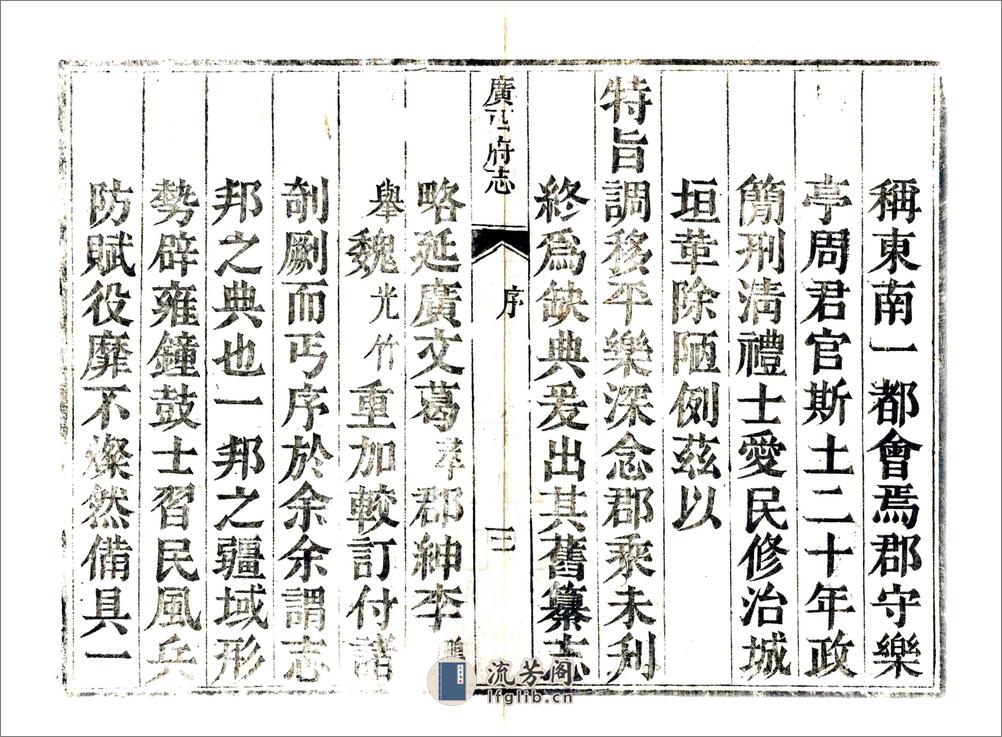 稱東南一都會焉郡守樂
亭周君官斯土二十年政
簡刑清禮士愛民修治城
垣葦除陋例茲以
特旨調移平樂深念郡乘未利
終爲缺典爰出其舊纂志
廣西府志
序
三
略延廣文葛萃郡紳李鵾
舉魏光竹重加較訂付諸
剞劂而丐序於余余謂志
邦之典也一邦之疆域形
勢辟雍鐘鼓士習民風兵
防賦役靡不燦然備具一
流芳阁
lfglib.cn